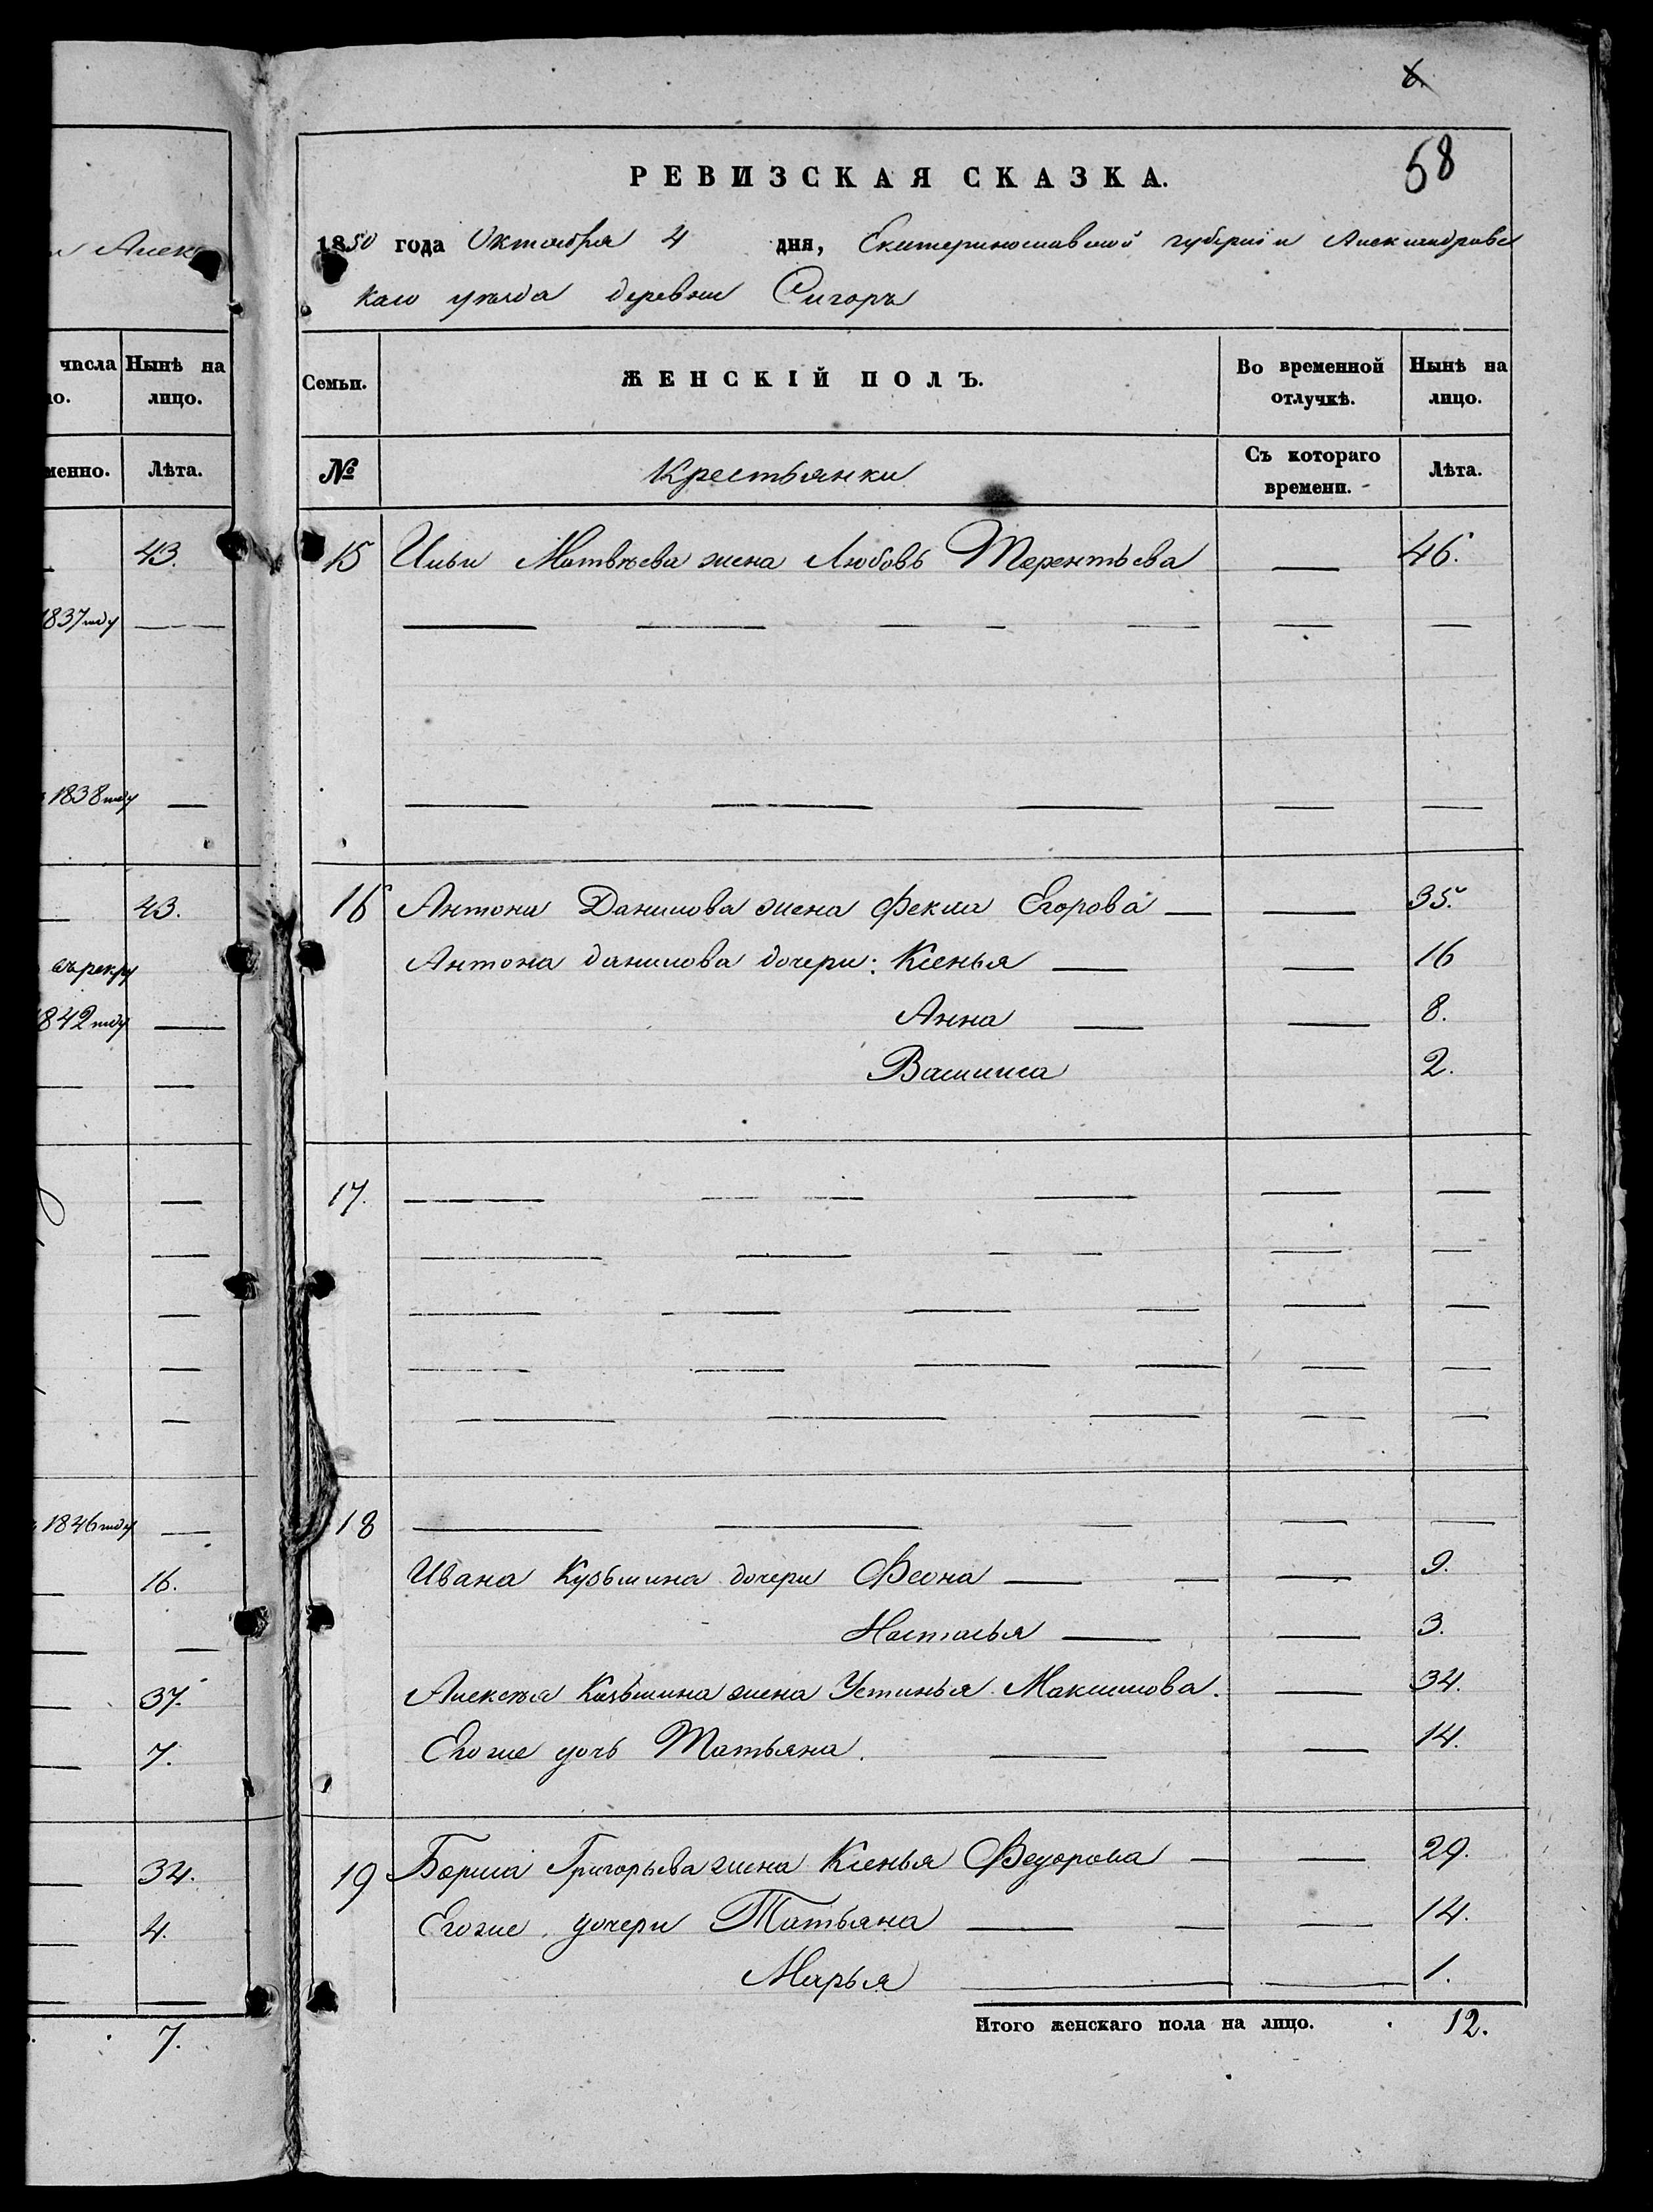 Алек
числа Нынѣ на
ло. лицо.
менно. Лѣта.
43.
1837 году
1838 году
43.
1842 году
1846 году
16.
37.
7.
34.
4.
7.
6.
58
РЕВИЗСКАЯ СКАЗКА.
1850 года Октября 4 дня, Екатеринославской губерніи Александровс
каго уѣзда деревни
Семьи. ЖЕНСКІЙ ПОЛЪ. Во временной отлучкѣ. Нынѣ на лицо.
№ Крестьянки Съ котораго времени. Лѣта.
15 Ильи Матвѣева жена Любовь Терентьева — 46.
16 Антона Данилова жена Фекла Егорова — 35.
Антона данилова дочери: Ксенья — 16
Анна — 8.
2.
17.
18
Ивана Кузьмина дочери Феона — 9.
Насталья — 3.
Алексѣя Козьмина жена Устинья Максимова. — 34.
Егоже дочь Татьяна. — 14.
19 Григорьева жена Ксенья Федорова — 29.
Егоже дочери Татьяна — 14.
Марья — 1.
Итого женскаго пола на лицо. 12.